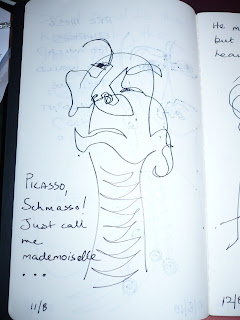 PICASSO,
Schmasso!
Just call
me
mademoiselle
...
11/8
He m
but
hea
12/8